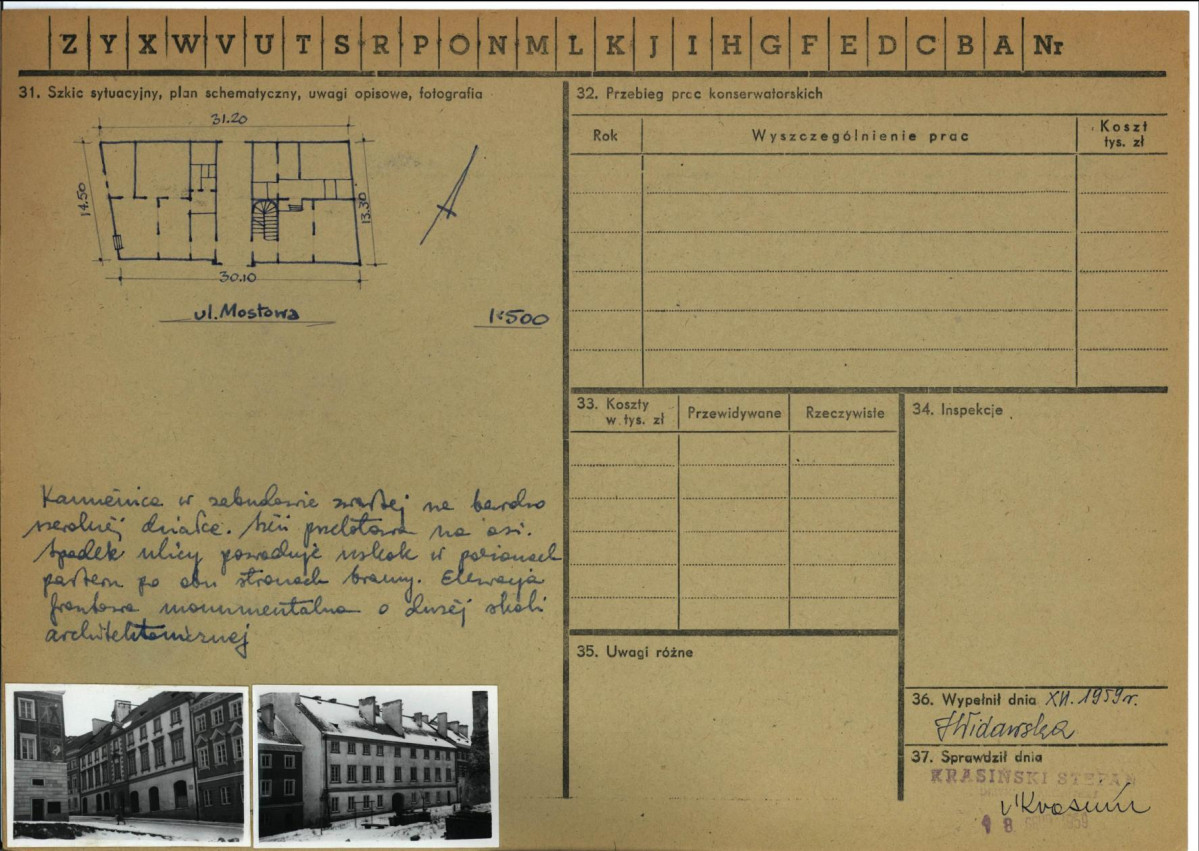 Z Y X W V U T S R P O N M L K J I H G F E D C B A Nr
31. Szkic sytuacyjny, plan schematyczny, uwagi opisowe, fotografia
31.20
14.50
13.30
30.10
ul. Mostowa
1:500
Kamienica w zabudowie zwartej na bardzo
szerokiej działce. Sień przelotowa na osi.
Spadek ulicy powoduje uskok w poziomach
parteru po obu stronach bramy. Elewacja
frontowa monumentalna o dużej skali
architektonicznej
32. Przebieg prac konserwatorskich
Rok
Wyszczególnienie prac
Koszt
tys. zł
33. Koszty
w tys. zł
Przewidywane
Rzeczywiste
34. Inspekcje
35. Uwagi różne
36. Wypełnił dnia XII. 1959 r.
HWidawska
37. Sprawdził dnia
KRASIŃSKI STEFAN
18 1959